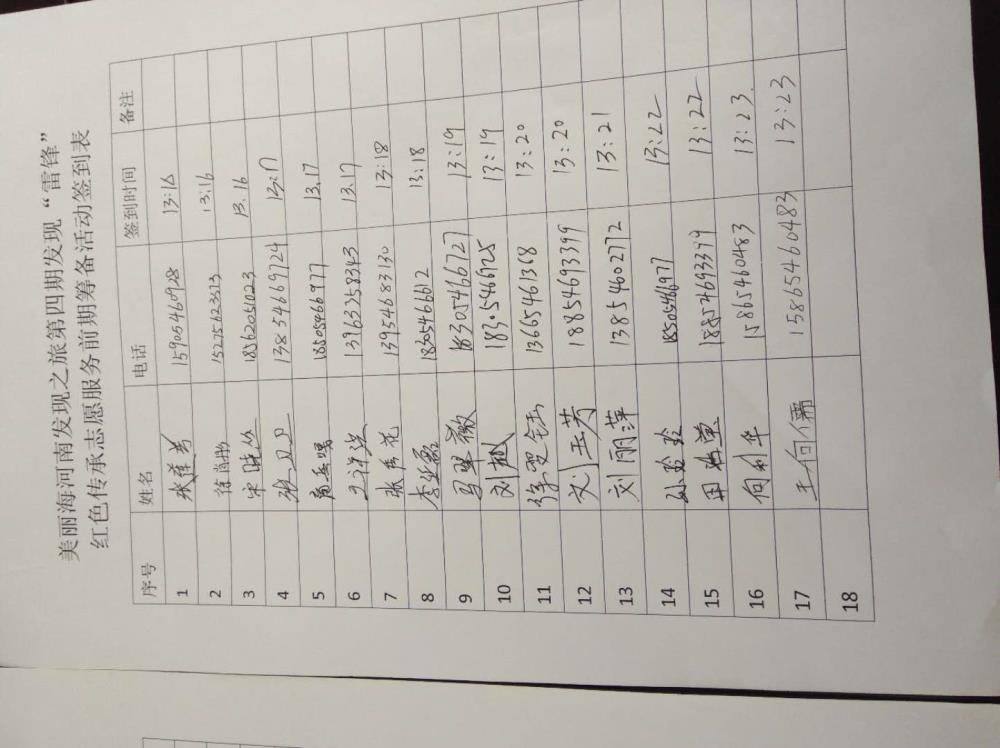 美丽海河南发现之旅第四期发现“雷锋”
红色传承志愿服务前期筹备活动签到表
序号 姓名 电话 签到时间 备注
1 15905460928 13:16
2 徐 15275623523 13:16
3 宋晓丛 18562051023 13.16
4 张卫卫 13854669724 13:17
5 18505466977 13.17
6 13963358343 13.17
7 张秀花 13954683130 13:18
8 李亚磊 18305466612 13:18
9 马翠薇 18305466727 13:19
10 刘彬 18305466925 13:19
11 徐雯钰 13665461368 13:20
12 刘玉芳 18854693399 13:20
13 刘丽萍 13854602772 13:21
14 孙玲玲 18505466977 13:22
15 田 18854693399 13:22
16 何利华 15865460483 13:23
17 王有儒 15865460483 13:23
18